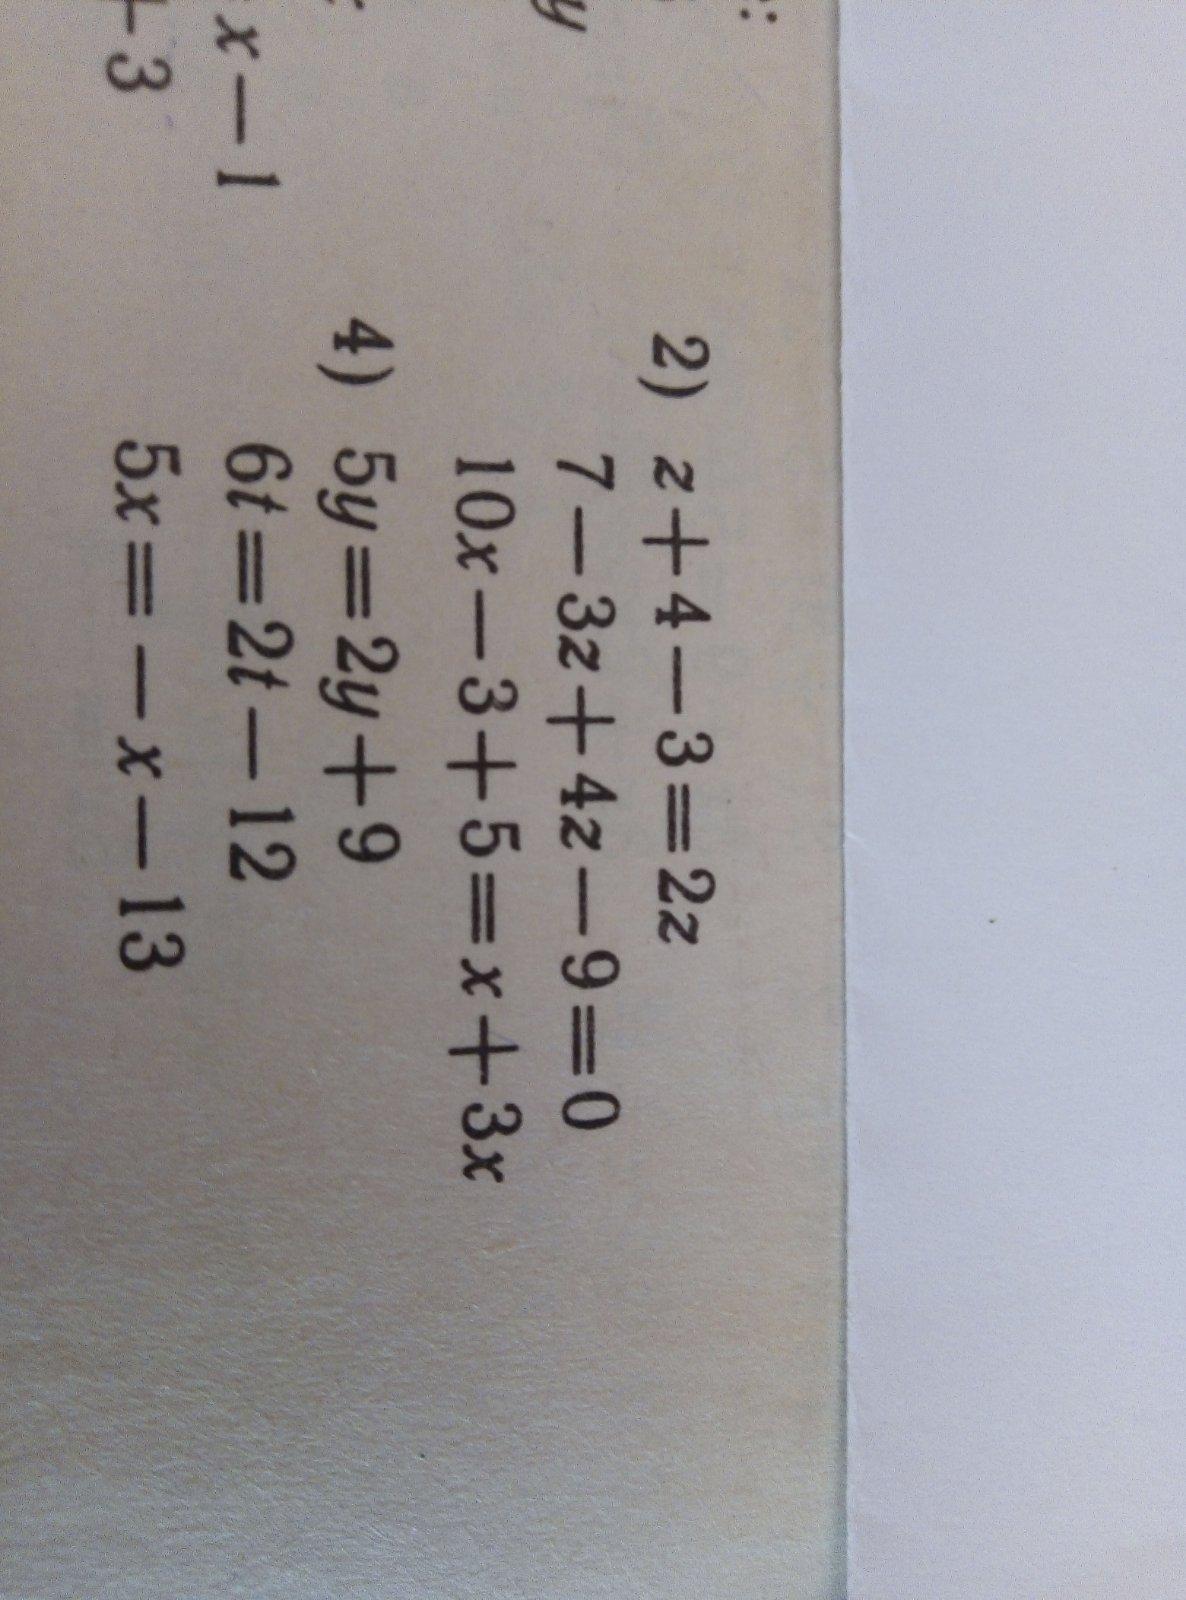 y
x−1
+3
2) z+4−3=2z
7−3z+4z−9=0
10x−3+5=x+3x
4) 5y=2y+9
6t=2t−12
5x=−x−13